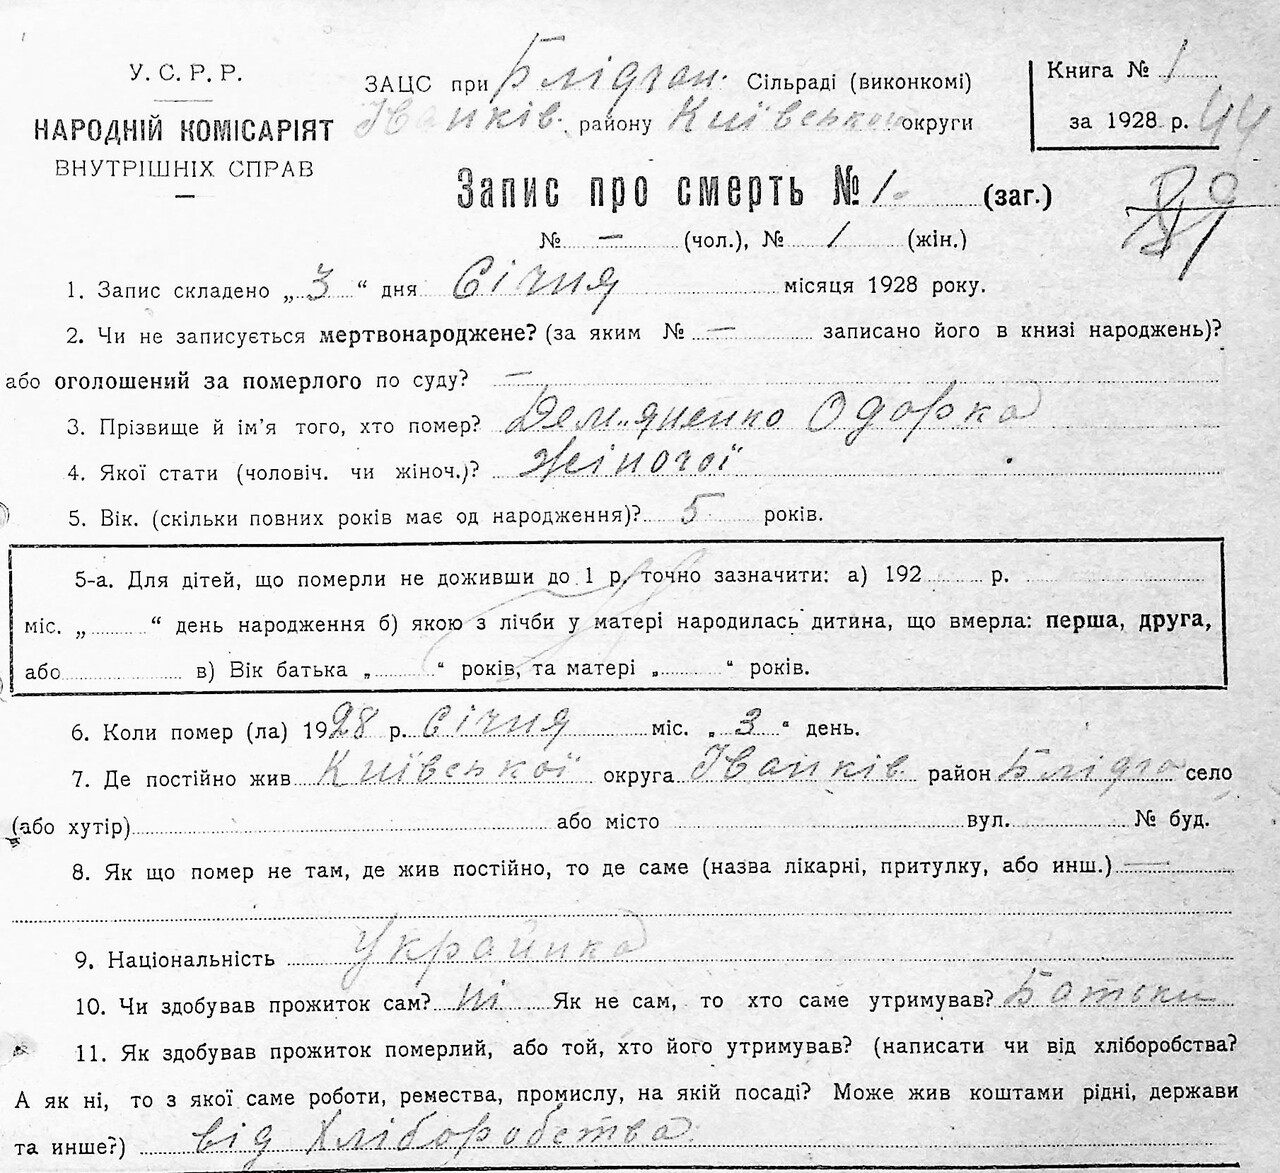 У. С. Р. Р.
НАРОДНІЙ КОМІСАРІЯТ
ВНУТРІШНІХ СПРАВ
ЗАЦС при Блідчан. Сільраді (виконкомі)
Іванків. району Київської округи
Книга № 1
за 1928 р. 44
Запис про смерть № 1. (заг.)
№ — (чол.), № 1 (жін.)
1. Запис складено „ 3 “ дня Січня місяця 1928 року.
2. Чи не записується мертвонароджене? (за яким № — записано його в книзі народжень)?
або оголошений за померлого по суду? —
3. Прізвище й ім’я того, хто помер? Дем"яненко Одарка
4. Якої стати (чоловіч. чи жіноч.)? Жіночої
5. Вік. (скільки повних років має од народження)? 5 років.
5-а. Для дітей, що померли не доживши до 1 р. точно зазначити: а) 192 р.
міс. „ “ день народження б) якою з лічби у матері народилась дитина, що вмерла: перша, друга,
або в) Вік батька „ “ років, та матері „ “ років.
6. Коли помер (ла) 1928 р. Січня міс. „ 3 “ день.
7. Де постійно жив Київської округа Іванків. район Блідча село
(або хутір) або місто вул. № буд.
8. Як що помер не там, де жив постійно, то де саме (назва лікарні, притулку, або инш.) —
9. Національність Українка
10. Чи здобував прожиток сам? ні Як не сам, то хто саме утримував? Батьки
11. Як здобував прожиток померлий, або той, хто його утримував? (написати чи від хліборобства?
А як ні, то з якої саме роботи, ремества, промислу, на якій посаді? Може жив коштами рідні, держави
та инше?) від Хліборобства.